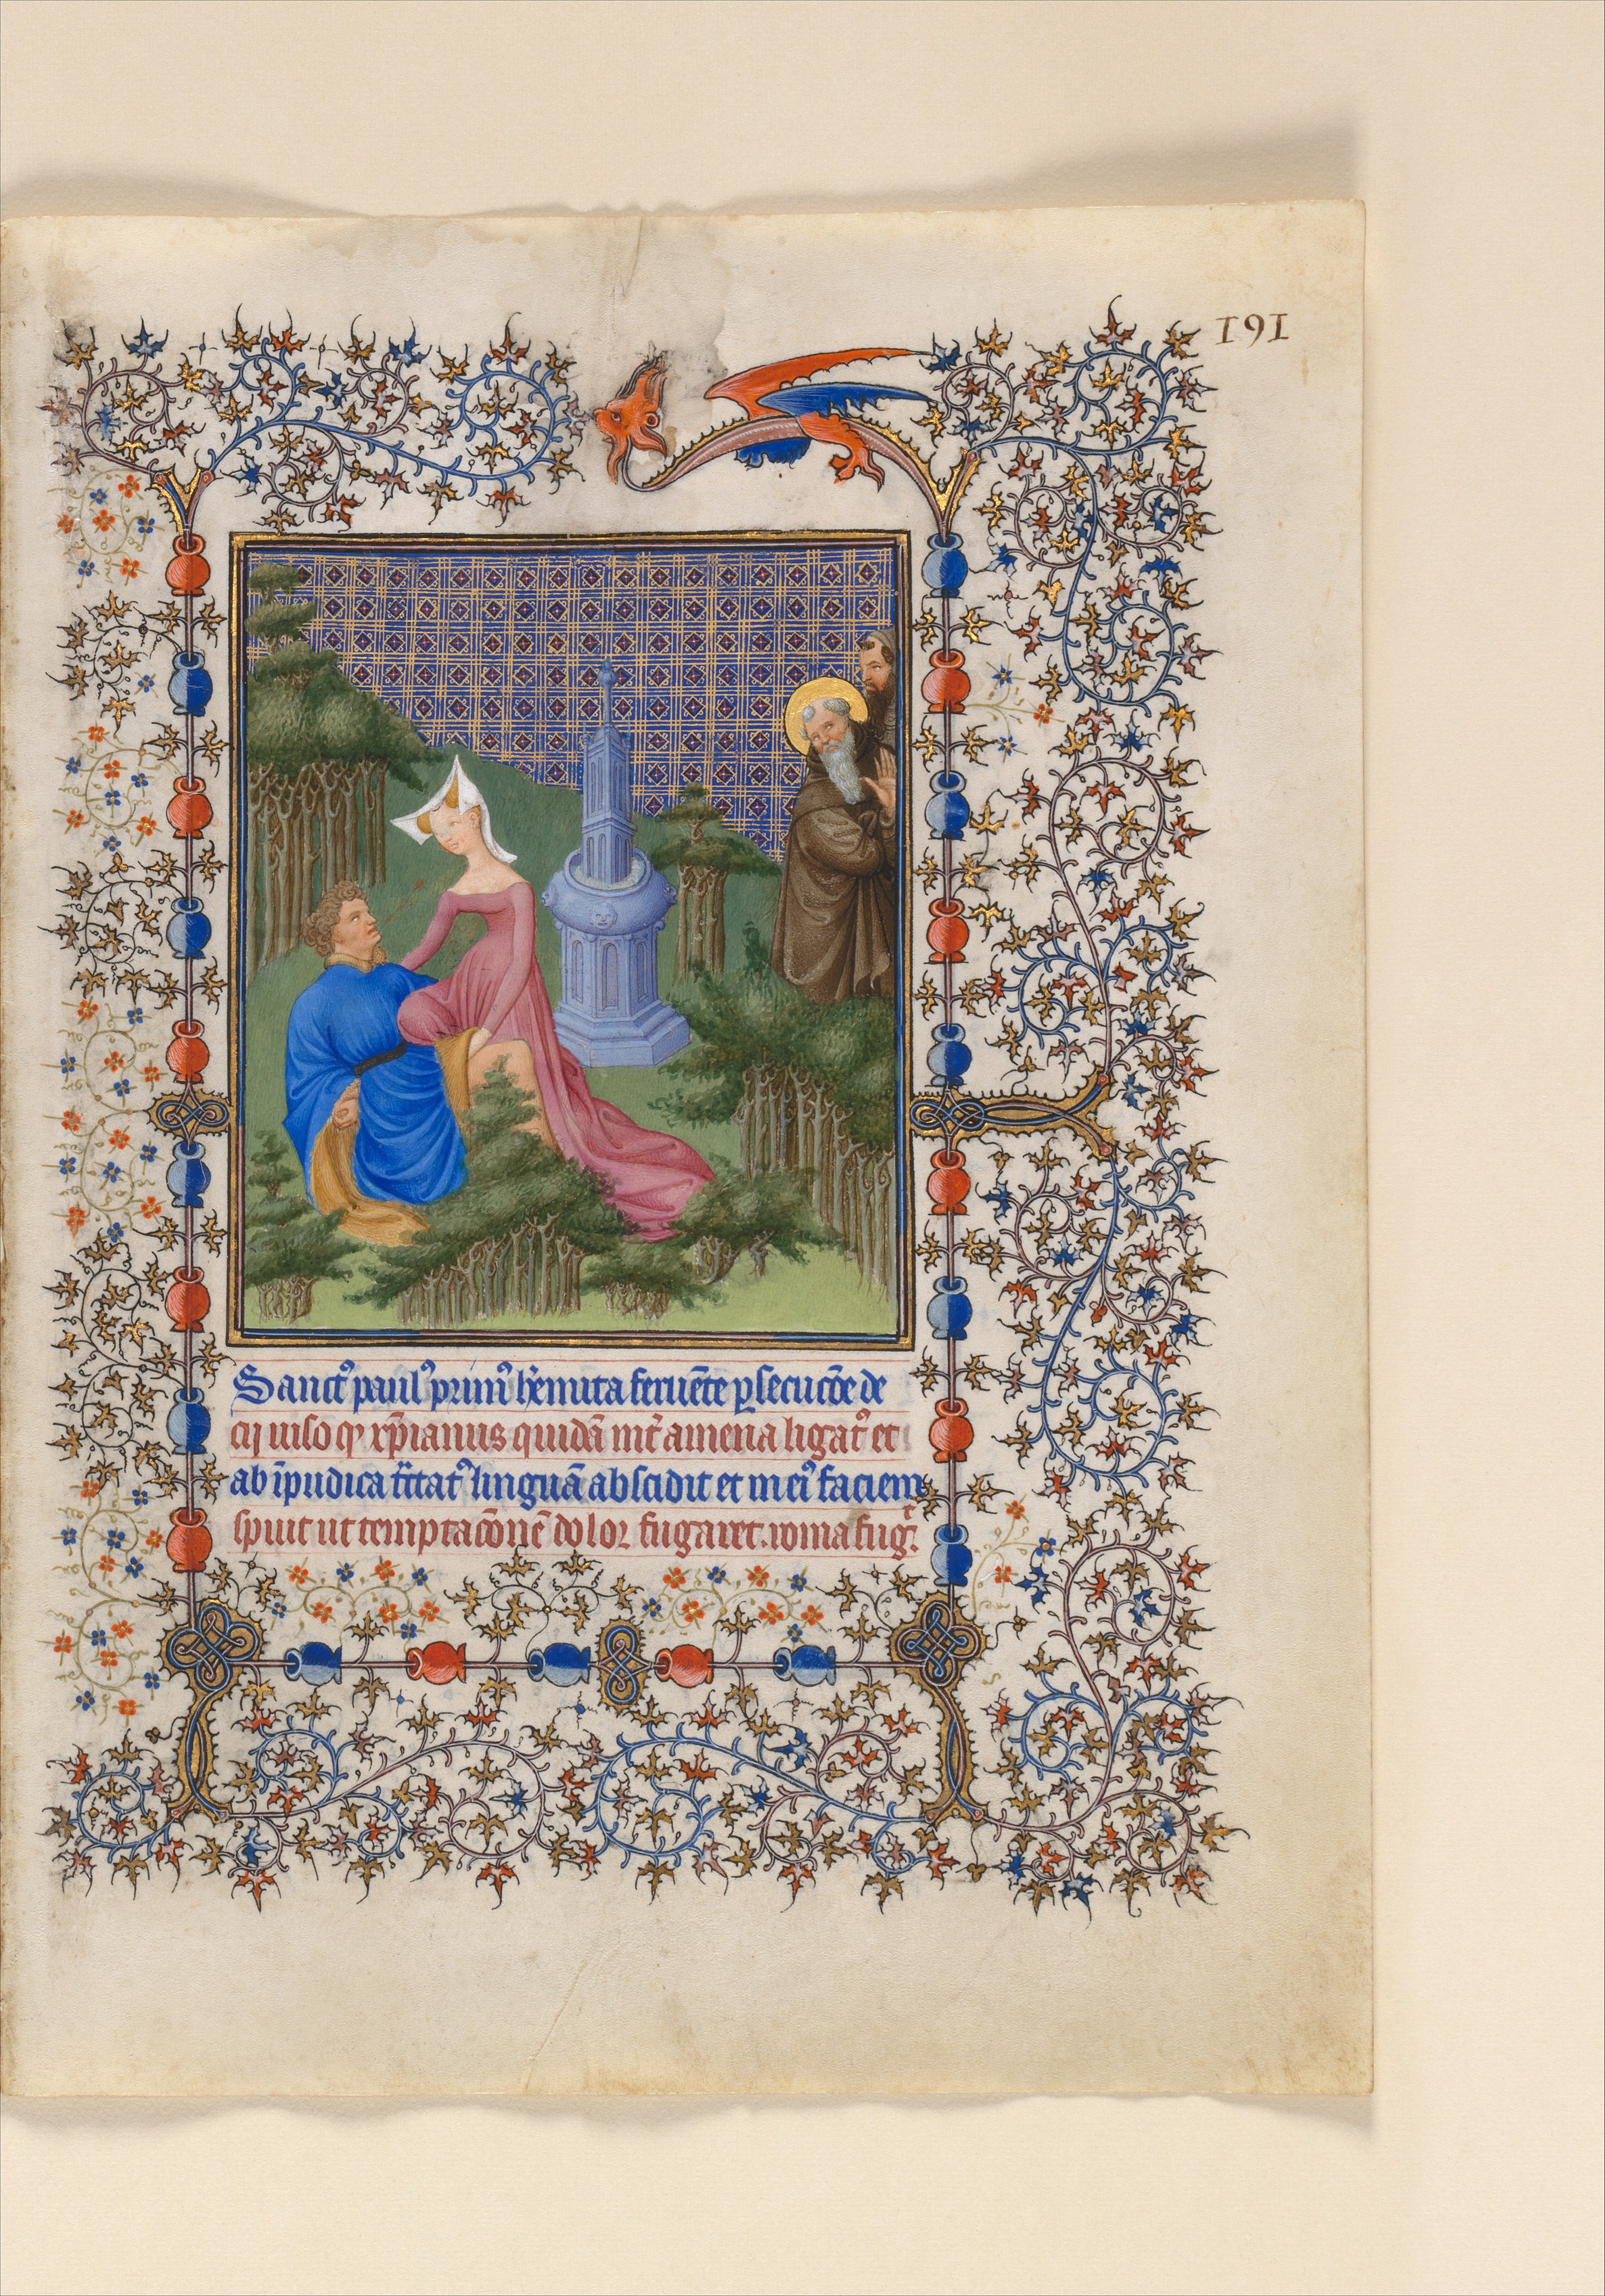 191
Sanctꝰ paulꝰ primꝰ h̄emita feruēte ꝑsecucōe de
cij uiso qꝫ xp̄ianus quidā int̄ amena ligatꝰ et
ab īpudica tc̄tatꝰ linguā abscidit et in eiꝰ faciem
spuit ut temptac̄onē dolor fugaret. roma fugit.